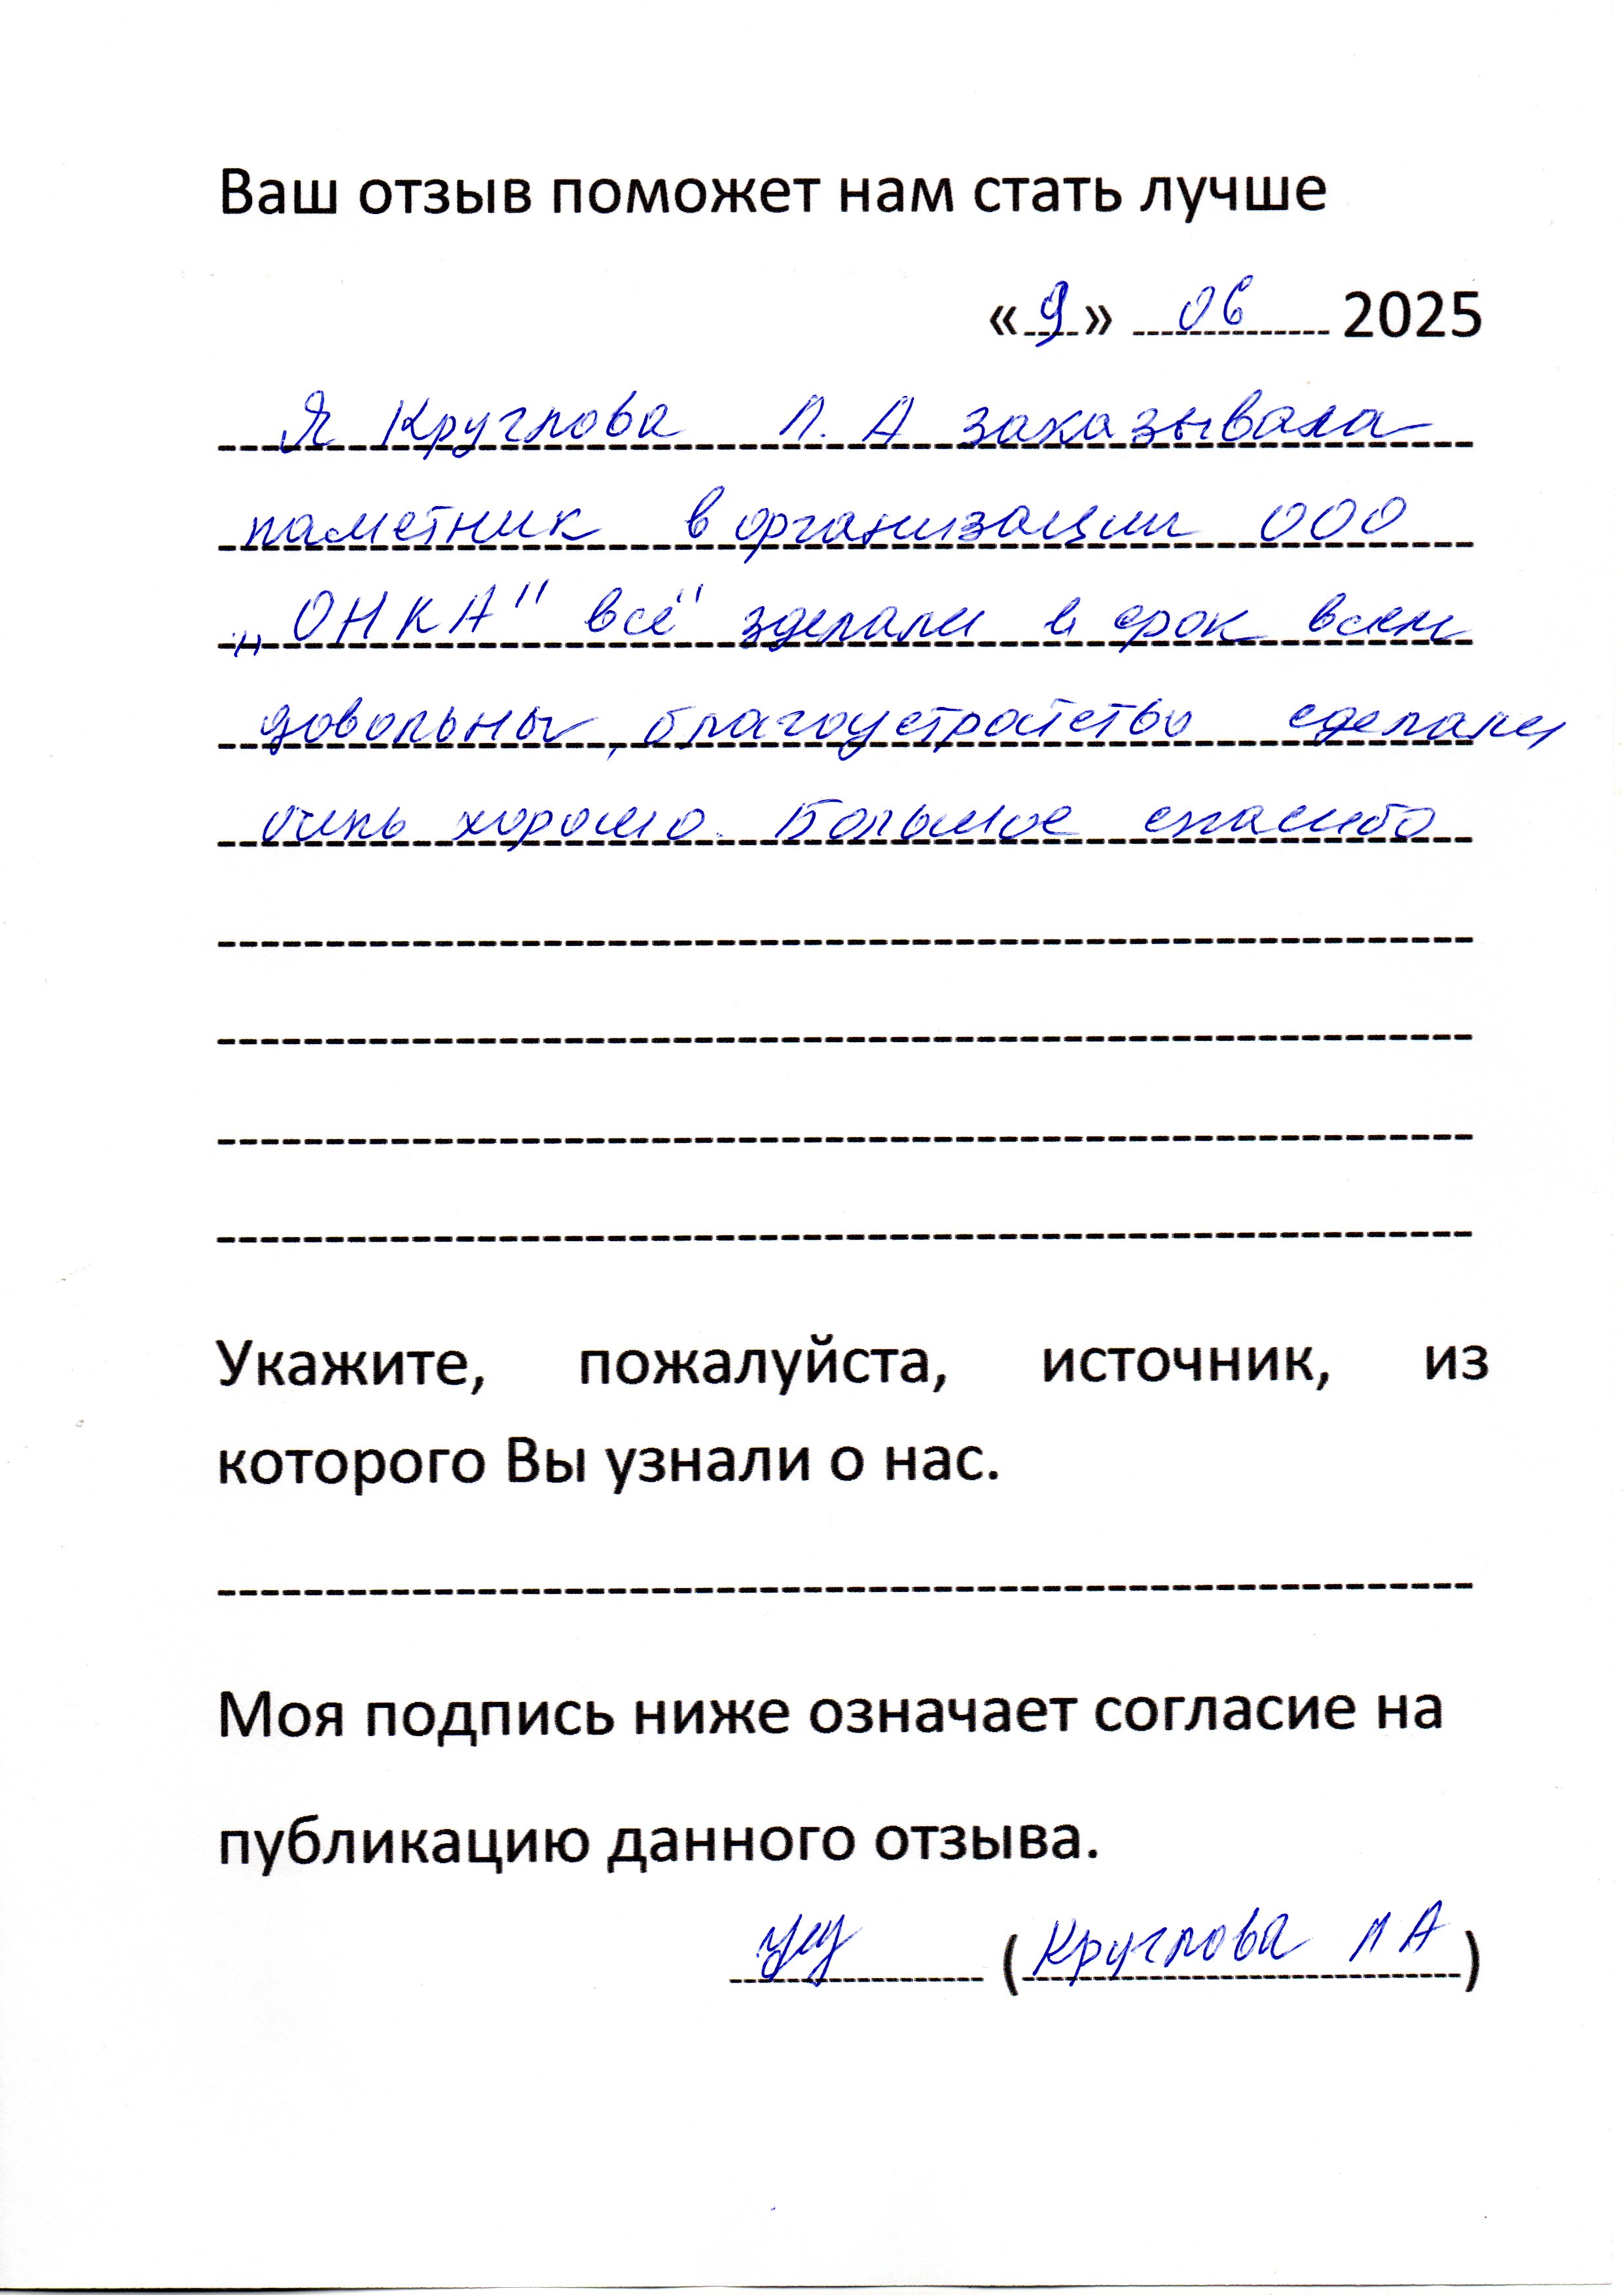 Ваш отзыв поможет нам стать лучше
«9» 06 2025
Я Круглова Л. А заказывала
паметник в организации ООО
„ОНКА" всё зделали в срок всем
довольны, благоустройство сделали
очень хорошо. Большое спасибо
Укажите, пожалуйста, источник, из
которого Вы узнали о нас.
Моя подпись ниже означает согласие на
публикацию данного отзыва.
(Круглова Л А)